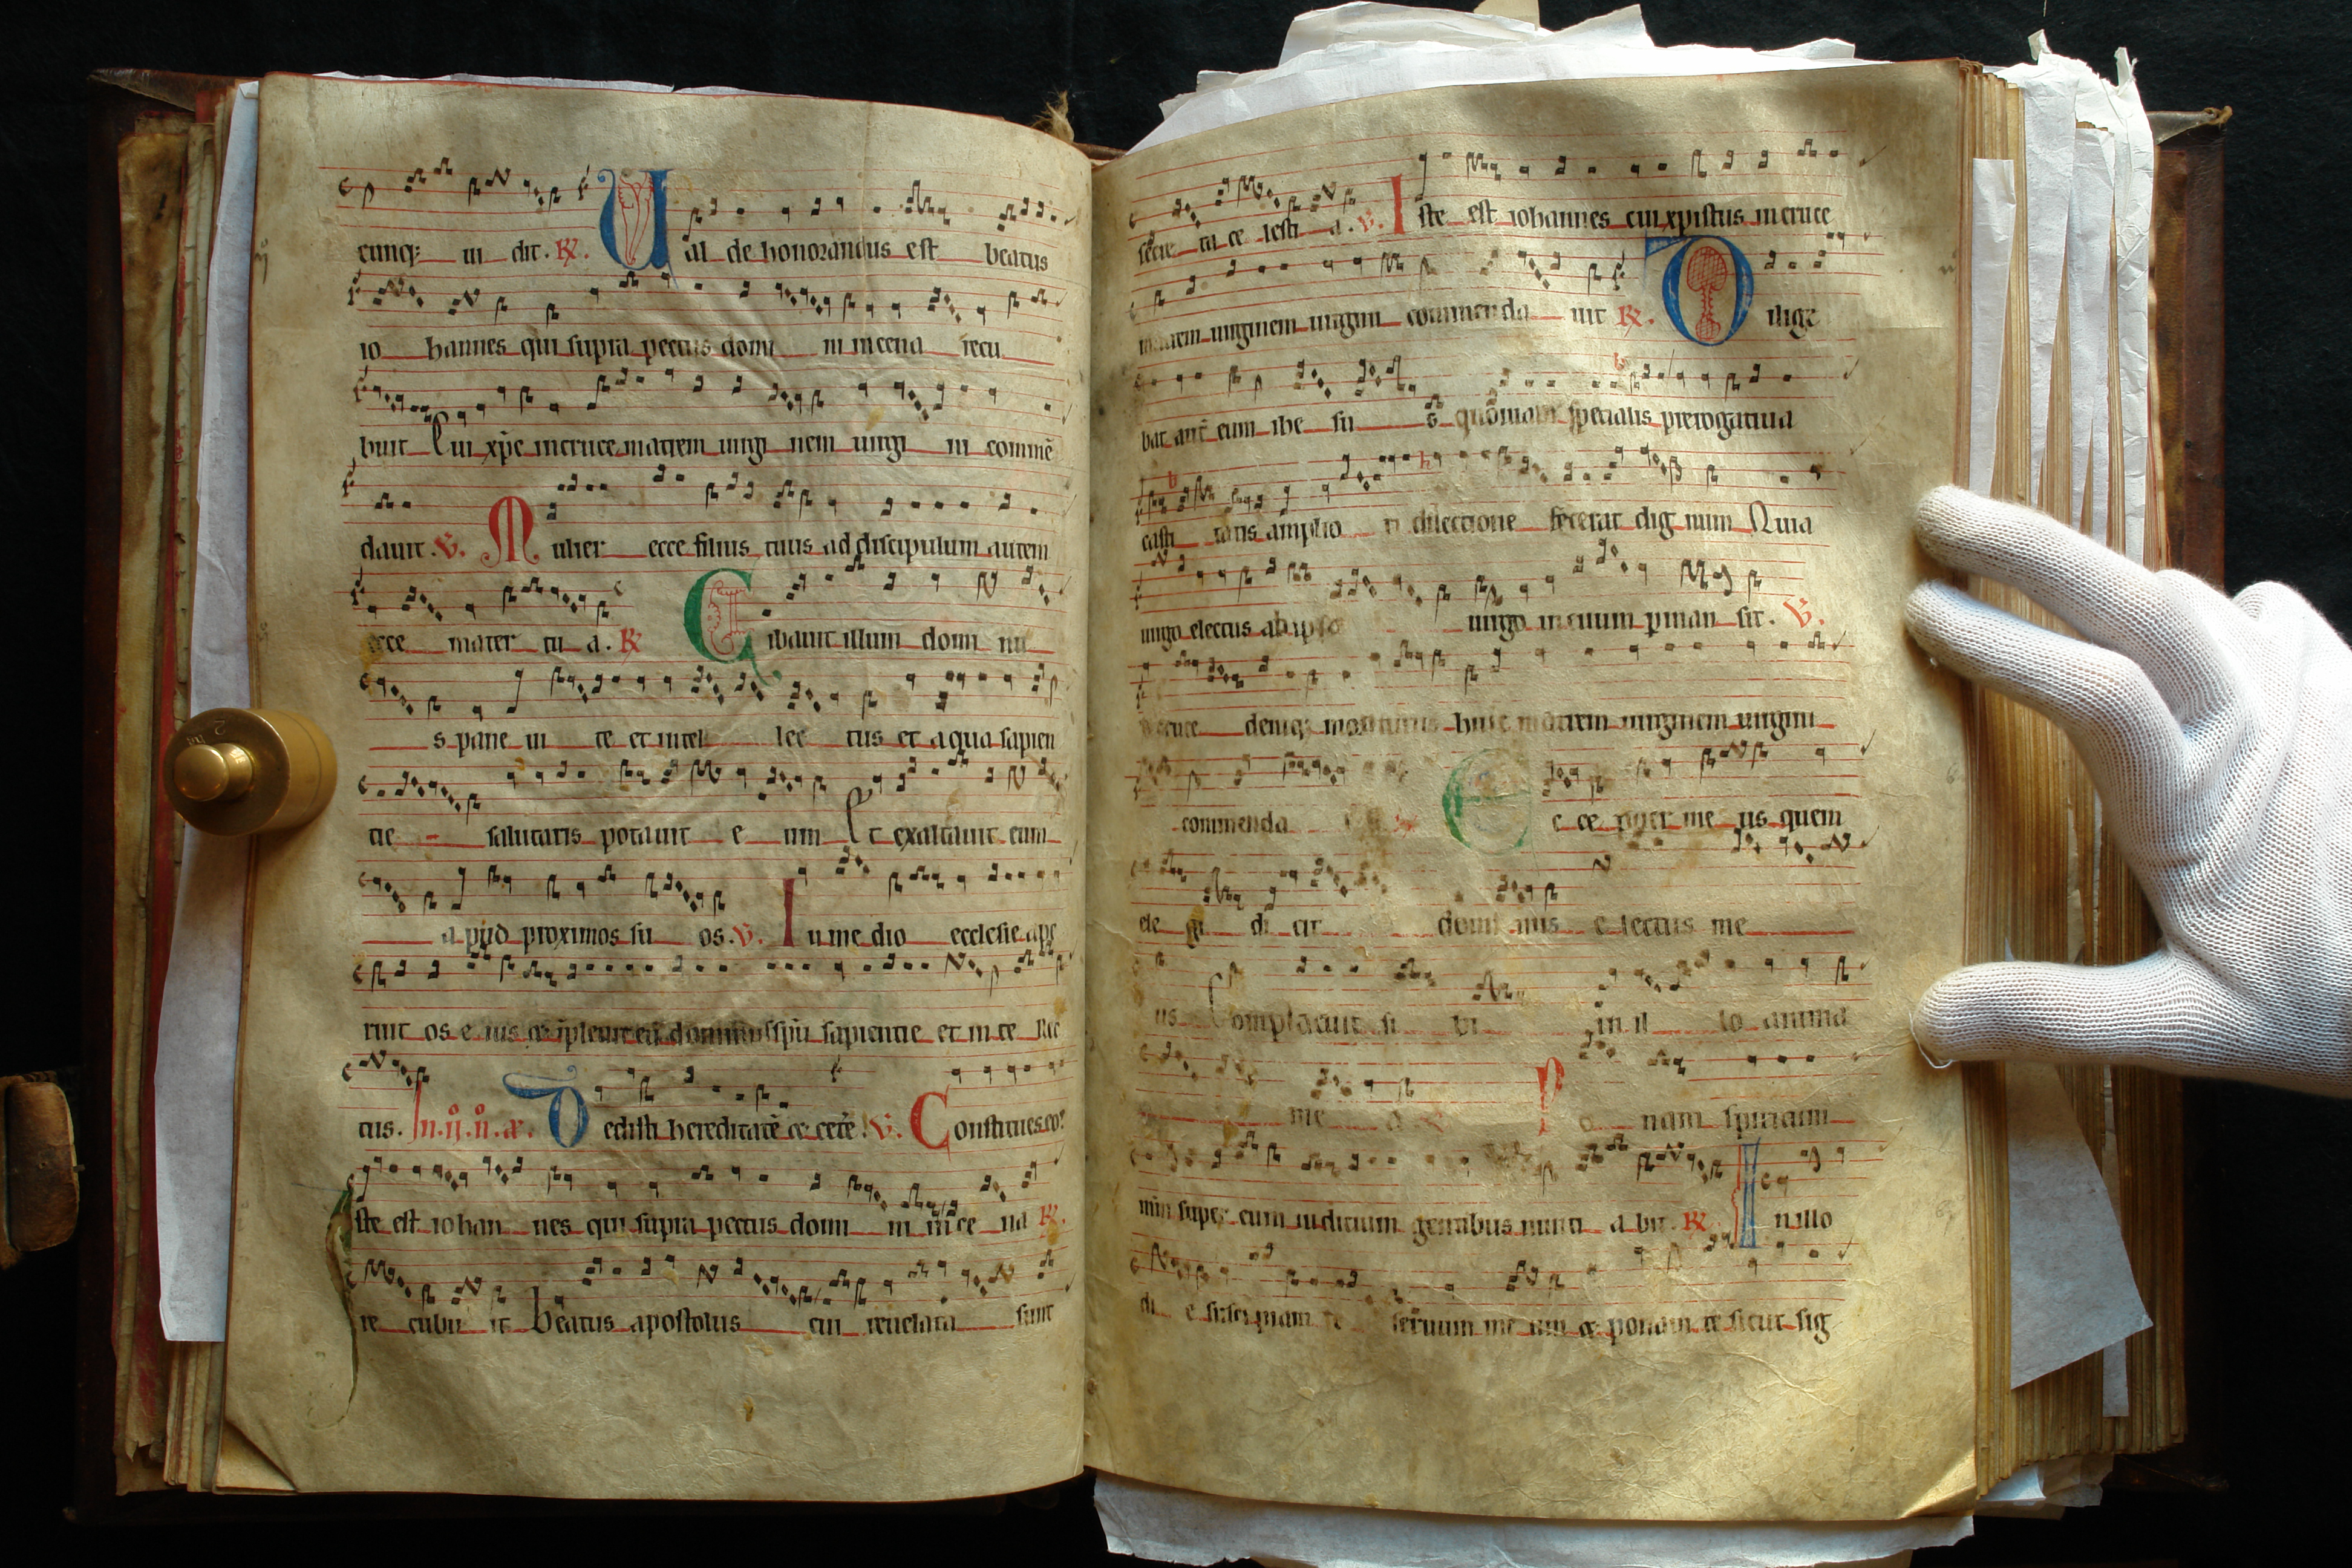 cunq; ui dit. R. Ual de honorandus est beatus
io hannes qui supra pectus domi ni in cena recu
buit Cui xp̄c in cruce matrem uirgi nem uirgi ni commē
dauit. V. Mulier ecce filius tuus ad discipulum autem
ecce mater tu a. R. Cibauit illum domi nu
s pane ui te et intel lec tus et aqua sapien
tie salutaris potauit e um Et exaltauit eum
apud proximos su os. V. In me dio ecclesie ape
ruit os e ius et īpleuit eū dominus sp̄u sapientie et in te llec
tus. In .ij. n̊. a. Dedisti hereditatē et cete. V. Constitues eo
Iste est iohan nes qui supra pectus domi ni in ce na R.
re cubu it beatus apostolus cui reuelata sunt
secre ta ce lesti a. V. Iste est iohannes cui xpistus in cruce
matrem uirginem uirgini commenda uit R. Dilige
bat autē eum ihe su s quoniam specialis prerogatiua
casti tatis amplio ri dilectione fecerat dig num Quia
uirgo electus ab ipso uirgo in euum pman sit. V.
cruce deniq; moriturus huic matrem uirginem uirgini
commenda Ecce puer me us quem
ele gi di cit domi nus e lectus me
us Complacuit si bi in il lo anima
me a Ponam spiritum
meum super eum iudicium gentibus nunti a bit. R. In illo
di e suscipiam te seruum me um et ponam te sicut sig